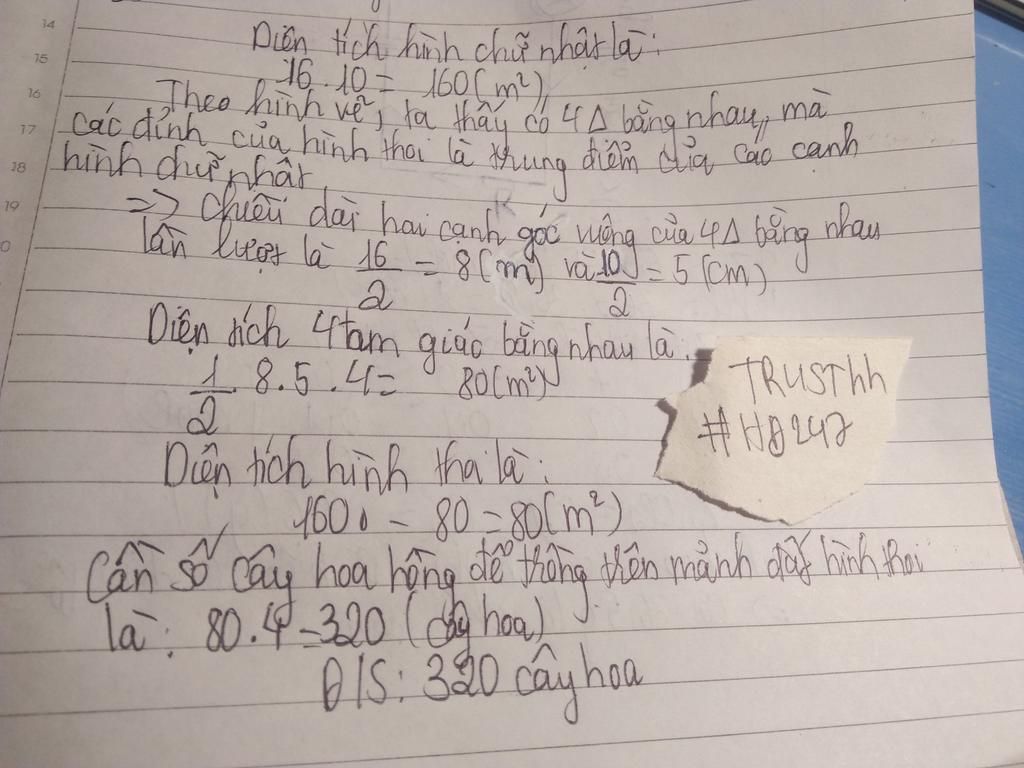 Diện tích hình chữ nhật là:
16.10 = 160(m²)
Theo hình vẽ, ta thấy có 4Δ bằng nhau, mà
các đỉnh của hình thoi là trung điểm của các cạnh
hình chữ nhật
=> Chiều dài hai cạnh góc vuông của 4Δ bằng nhau
lần lượt là 16/2 = 8(m) và 10/2 = 5 (cm)
Diện tích 4 tam giác bằng nhau là:
1/2 . 8.5.4 = 80(m²)
Diện tích hình thoi là:
160 - 80 = 80(m²)
Cần số cây hoa hồng để trồng trên mảnh đất hình thoi
là: 80.4 = 320 (cây hoa)
Đ/S: 320 cây hoa
TRUSThh
#HB247
14
15
16
17
18
19